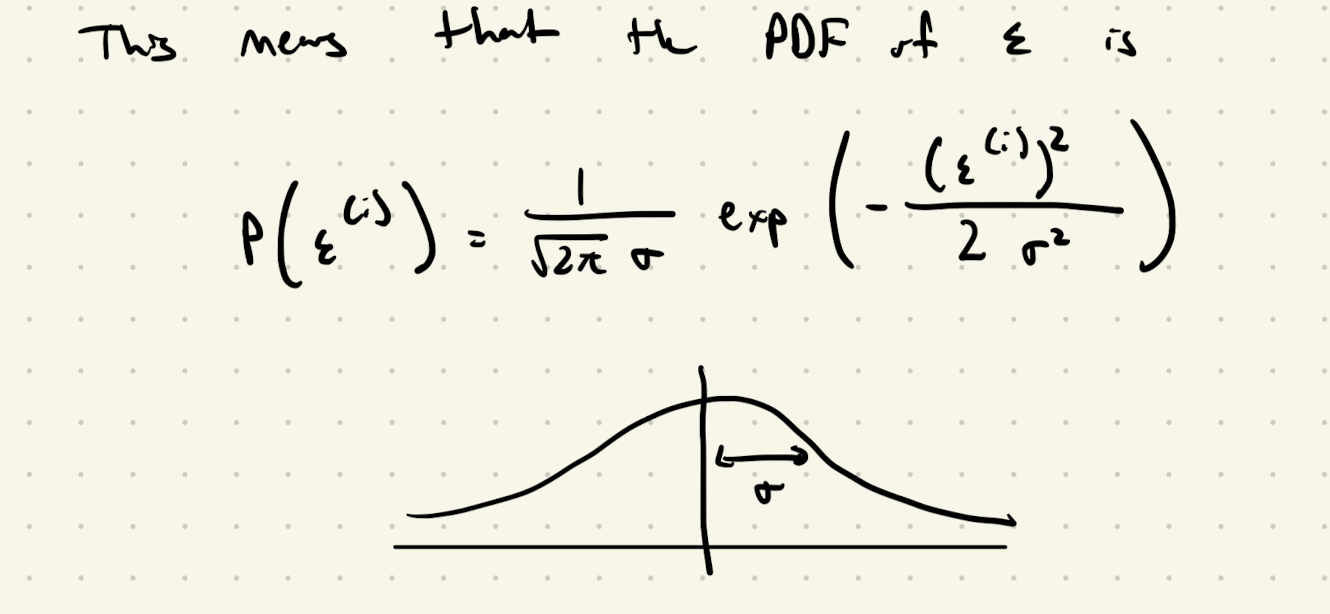 This means that the PDF of ε is
P(ε^(i)) = 1/(√2π σ) exp(-(ε^(i))²/(2 σ²))
σ